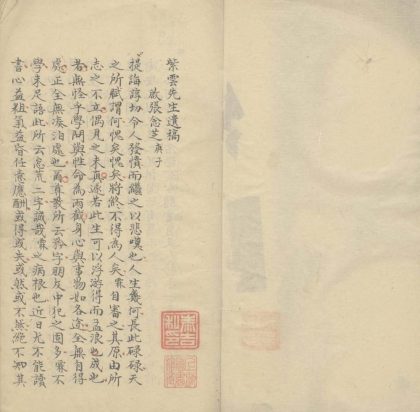 紫雲先生遺稿
啟張念芝庚子
提誨諄切令人發憤而繼之以悲嘆也人生幾何長此碌碌天
之所賦謂何愧矣愧矣將然不得為人矣霖自審之其原由所
志之不立偶見之未真遂若此生可以浮游得而孟浪也成也
若無怪乎學問與性命為兩截身心與事物如各途全無自得
處正全無湊泊處也尊教所云矜字朋友中犯之固多霖不
學未足語此所云怠荒二字誠哉霖之病根也近日尤不能讀
書心益粗氣益昏任意應酬或得或失或然或不然絕不知其